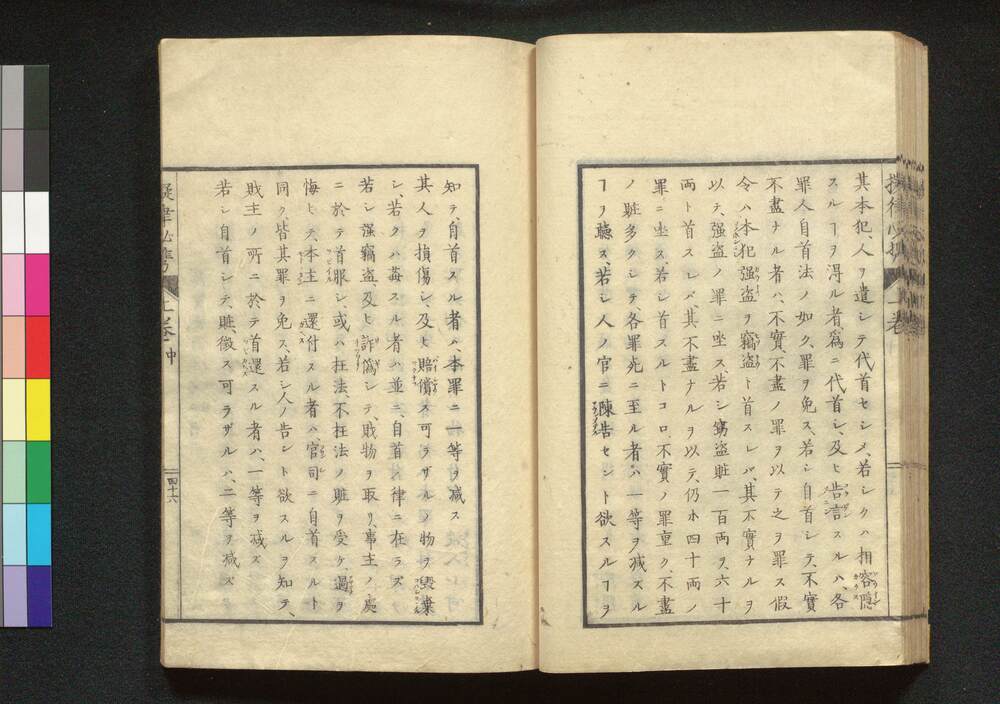 其本犯人ヲ遣シテ代首セシメ、若シクハ相容隱
スルヿヲ得ル者、爲ニ代首シ、及ヒ告言スルハ、各
罪人自首法ノ如ク、罪ヲ免ス、若シ自首シテ、不實
不盡ナル者ハ、不實、不盡ノ罪ヲ以テ之ヲ罪ス、假
令ハ本犯强盗ヲ竊盗ト首スレハ、其不實ナルヲ
以テ、强盗ノ罪ニ坐ス、若シ竊盗贓一百兩ヲ、六十
兩ト首スレハ、其不盡ナルヲ以テ、仍ホ四十兩ノ
罪ニ坐ス、若シ首スルトコロ、不實ノ罪重ク、不盡
ノ贓多クシテ、各罪死ニ至ル者ハ、一等ヲ减スル
ヿヲ聽ス、若シ人ノ官ニ陳告セント欲スルヿヲ
知テ、自首スル者ハ、本罪ニ一等ヲ减ス
其人ヲ損傷シ、及ヒ賠償ス可ラサルノ物ヲ毀棄
シ、若クハ姦スル者ハ並ニ、自首ノ律ニ在ラス
若シ强竊盗、及ヒ詐僞シテ、財物ヲ取リ、事主ノ處
ニ於テ首服シ、或ハ枉法、不枉法ノ贓ヲ受ケ、過ヲ
悔ヒテ、本主ニ還付スル者ハ、官司ニ自首スルト
同ク、皆其罪ヲ免ス、若シ人ノ告ント欲スルヲ知テ、
財主ノ所ニ於テ首還スル者ハ、一等ヲ减ス
若シ自首シテ、贓、徴ス可ラザルハ、二等ヲ减ス
擬律必携
上卷 中
四十六